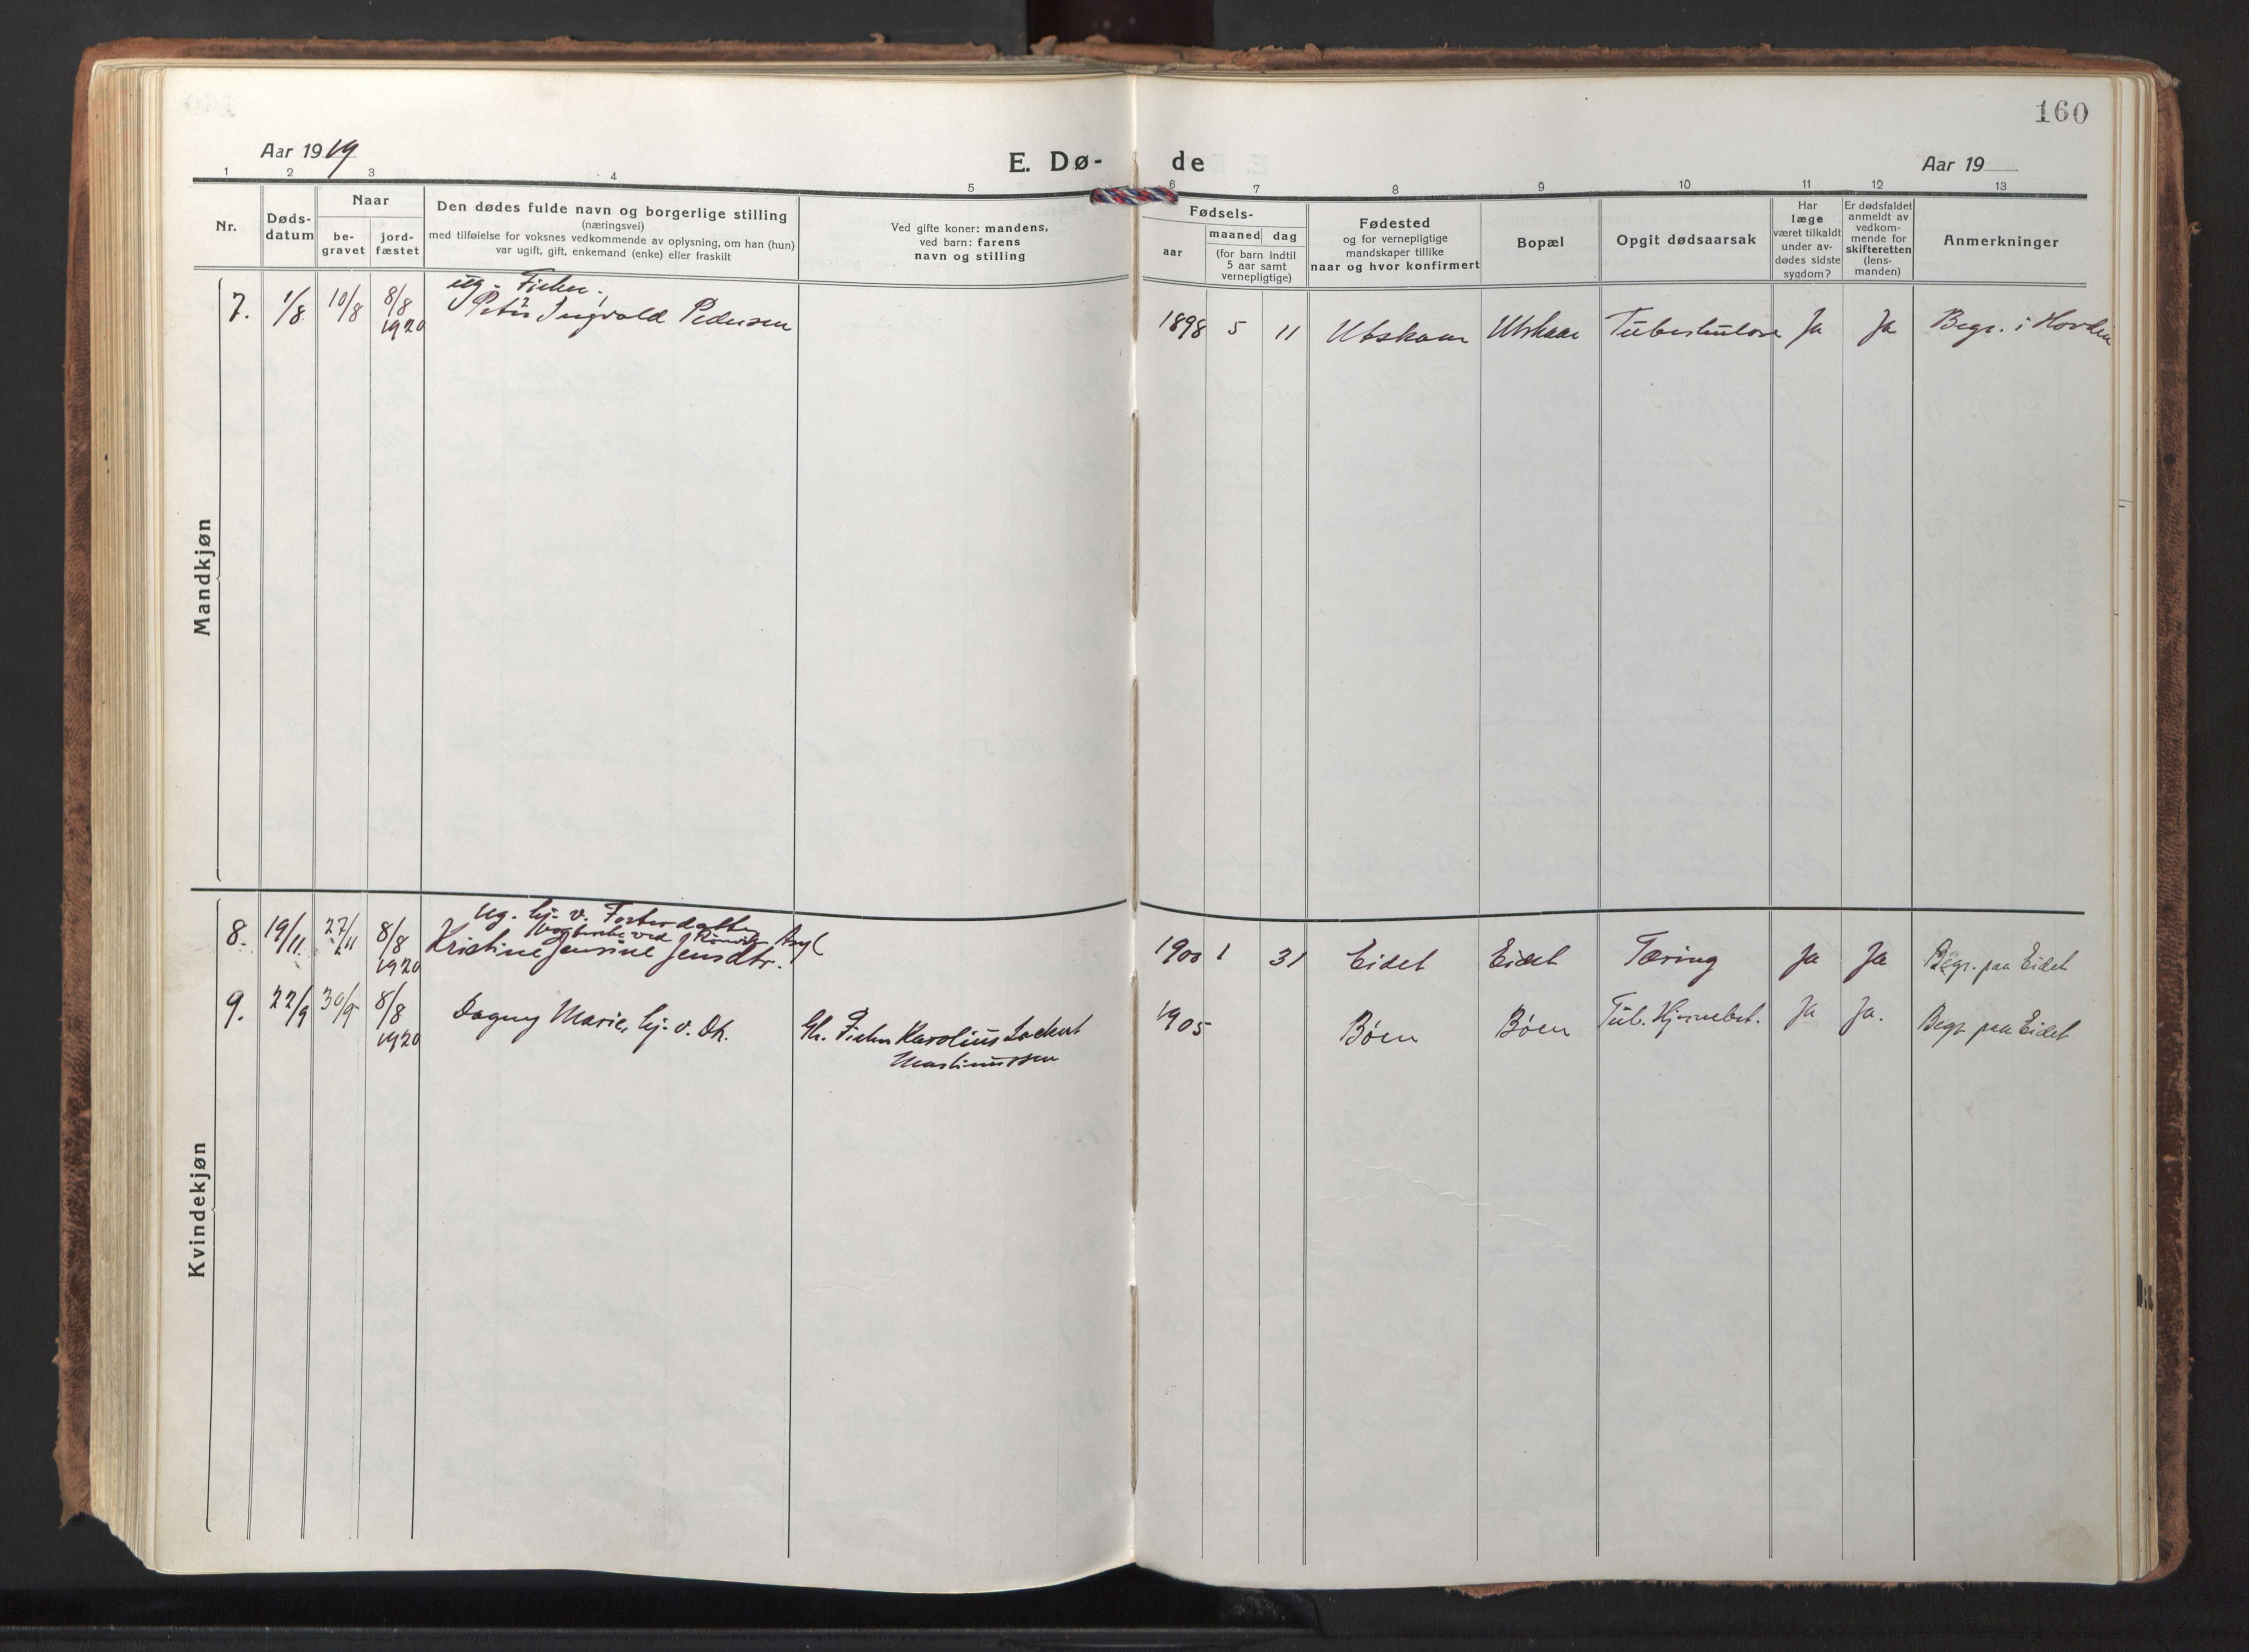 160
Aar 1919
E. Dø-
de
Aar 19
1 2 3 4 5 6 7 8 9 10 11 12 13
Nr.
Døds-
datum
Naar
be-
gravet
jord-
fæstet
Den dødes fulde navn og borgerlige stilling
(næringsvei)
med tilføielse for voksnes vedkommende av oplysning, om han (hun)
var ugift, gift, enkemand (enke) eller fraskilt
Ved gifte koner: mandens,
ved barn: farens
navn og stilling
Fødsels-
aar
maaned dag
(for barn indtil
5 aar samt
vernepligtige)
Fødested
og for vernepligtige
mandskaper tillike
naar og hvor konfirmert
Bopæl
Opgit dødsaarsak
Har
læge
været tilkaldt
under av-
dødes sidste
sygdom?
Er dødsfaldet
anmeldt av
vedkom-
mende for
skifteretten
(lens-
manden)
Anmerkninger
Mandkjøn
ug. Fisker.
7. 1/8 10/8 8/8 Peter Ingvald Pedersen 1898 5 11 Utskaar Utskaar Tuberkulose Ja Ja Begr. i Hovden
1920
Kvindekjøn
ug. hj. v. Fosterdatter
ved Rønvik Asyl
8. 19/11. 27/11 8/8 Kristine Jensine Jensdtr. 1900 1 31 Eidet Eidet Tæring Ja Ja Begr. paa Eidet
1920
9. 22/9 30/9 8/8 Dagny Marie, hj. v. Dh. Gh. Fisker Karolius Lockert 1905 Bøen Bøen Tub. Hjernebet. Ja Ja. Begr. paa Eidet
1920 Martinussen